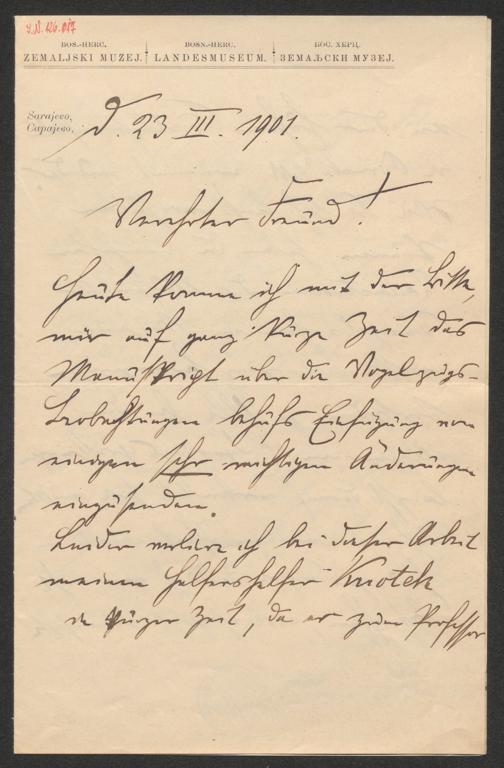 I.N. 126.017
BOS.-HERC. BOSN.-HERC. БОС. ХЕРЦ.
ZEMALJSKI MUZEJ. LANDESMUSEUM. ЗЕМАЉСКИ МУЗЕЈ.
Sarajevo,
Сарајево,
d. 23 III. 1901.
Verehrter Freund!
Heute komme ich mit der Bitte,
mir auf ganz kurze Zeit das
Manuskript über die Vogelzugs-
Beobachtungen behufs Einfügung von
einigen sehr wichtigen Änderungen
einzusenden.
Leider verliere ich bei dieser Arbeit
meinen Helfershelfer Knotek
in kurzer Zeit, da er zum Professor